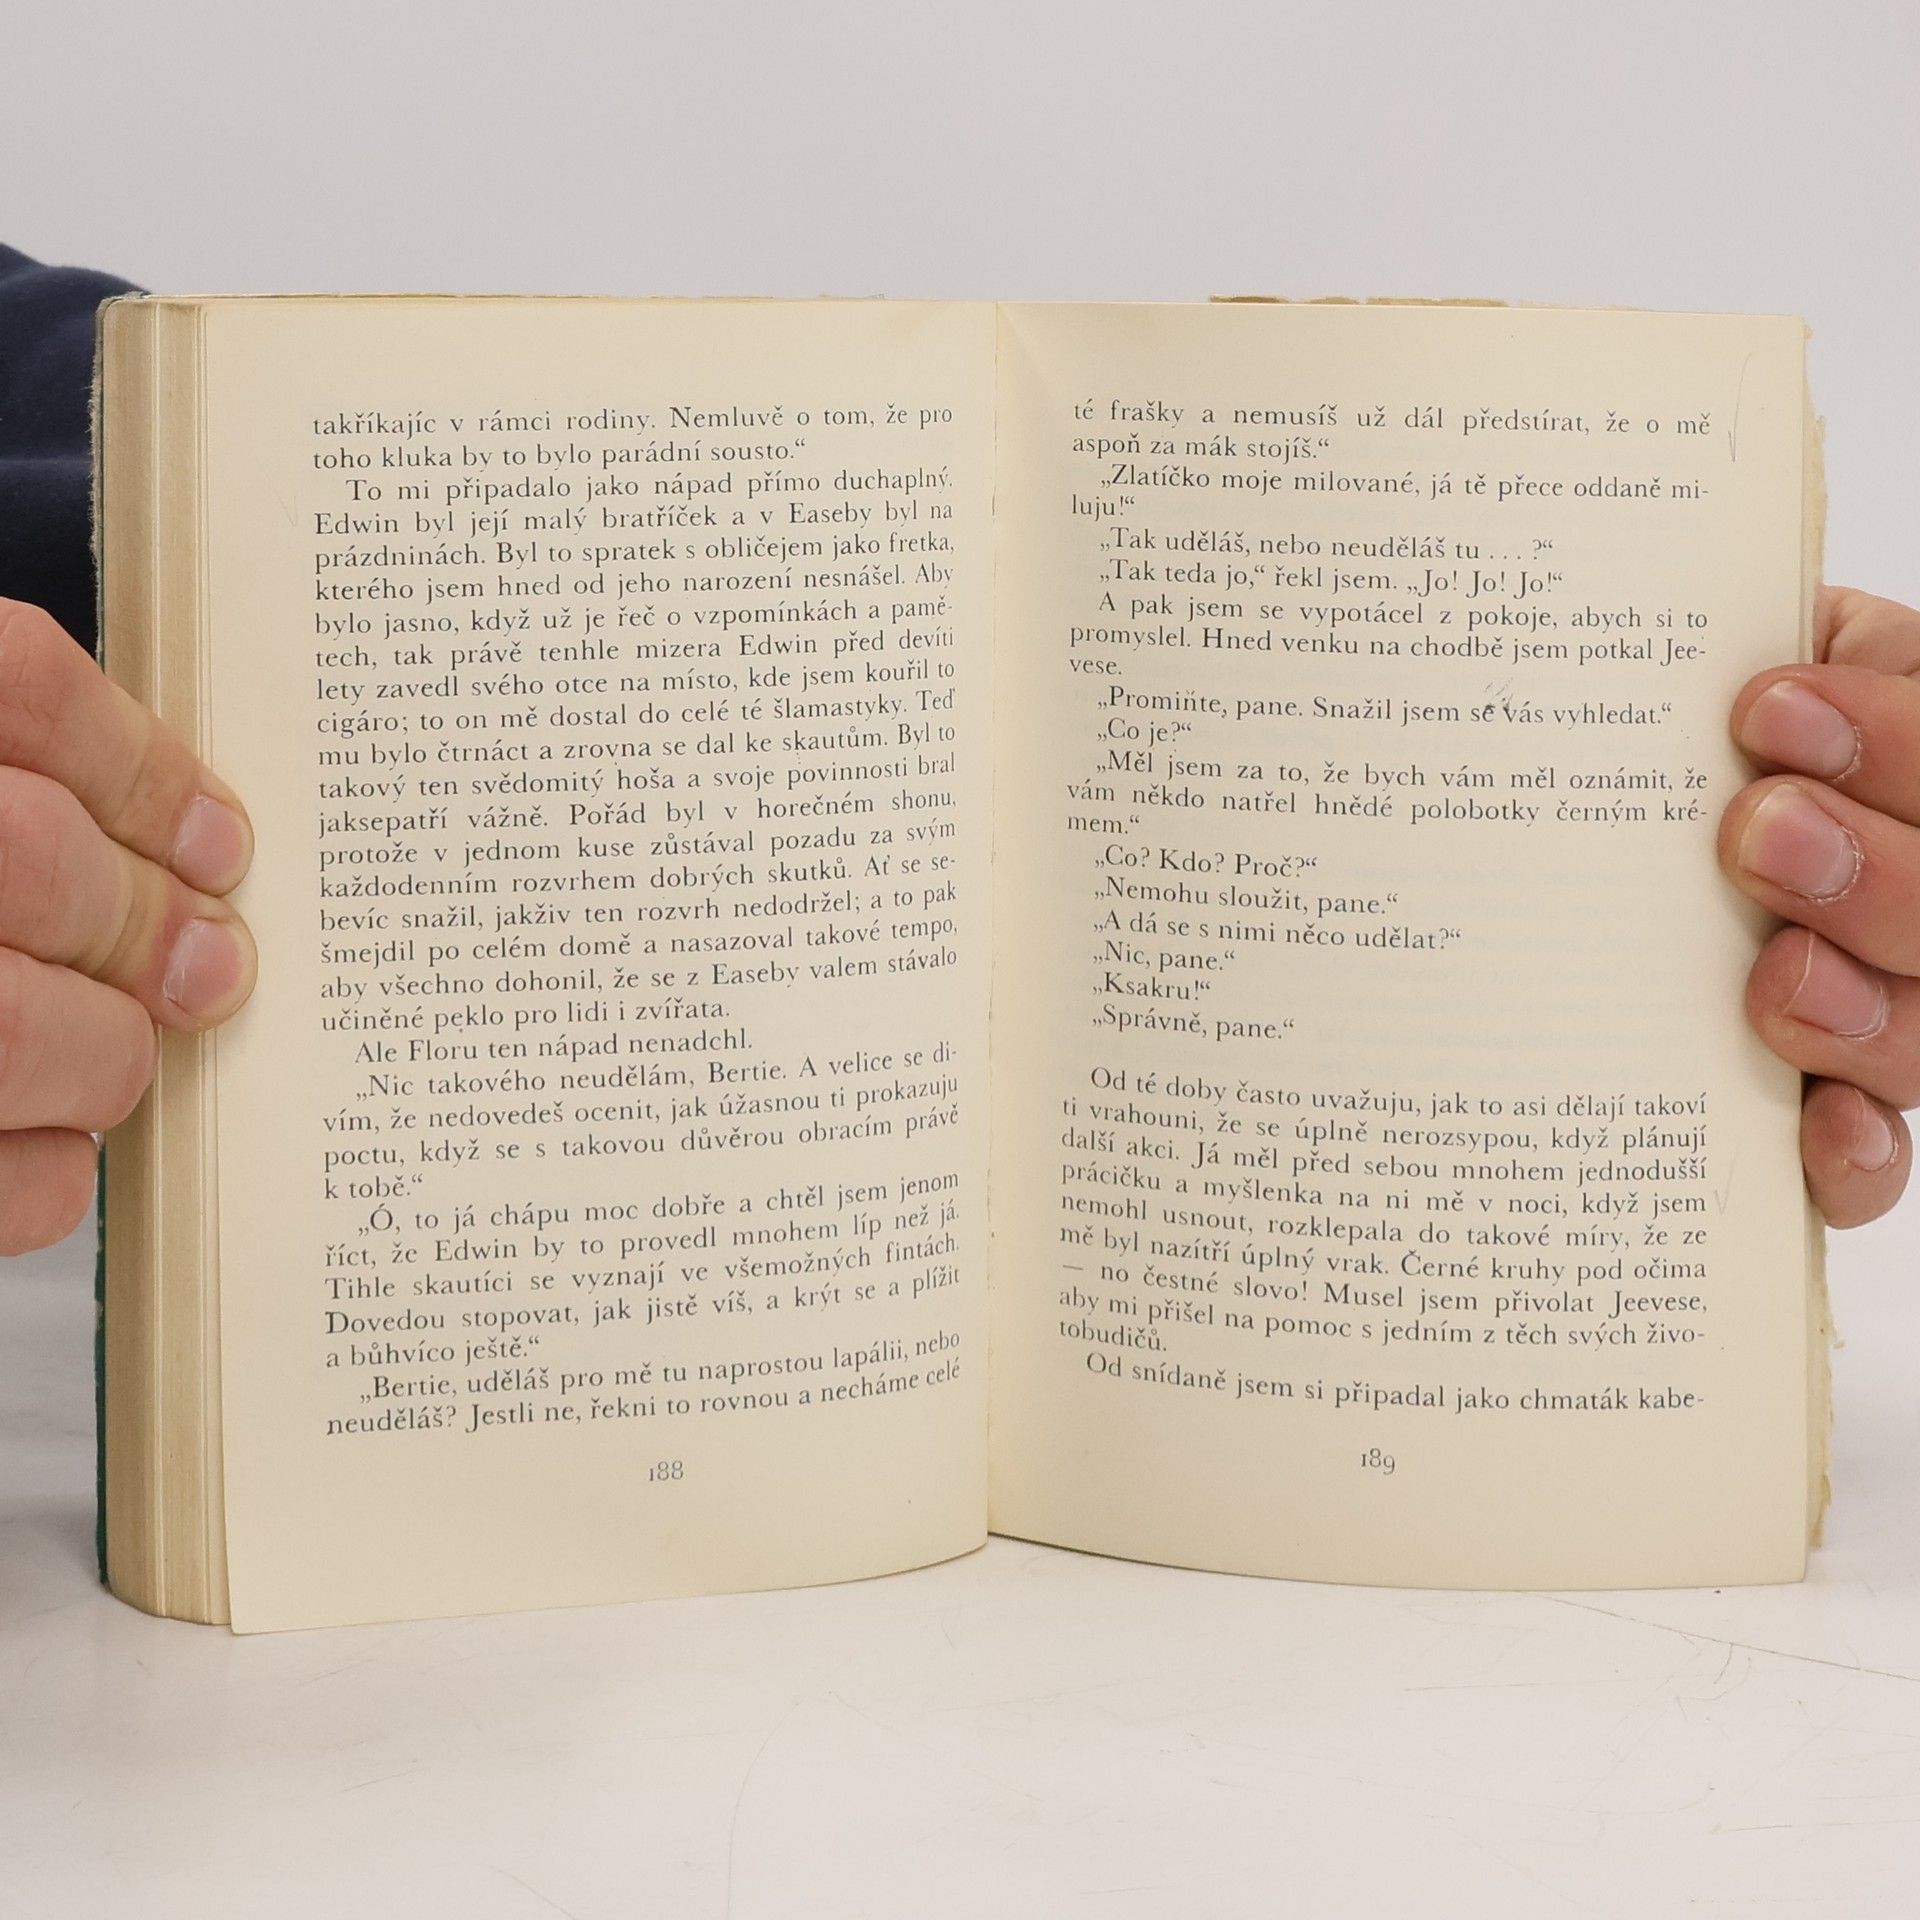 takříkajíc v rámci rodiny. Nemluvě o tom, že pro
toho kluka by to bylo parádní sousto.“
To mi připadalo jako nápad přímo duchaplný.
Edwin byl její malý bratříček a v Easeby byl na
prázdninách. Byl to spratek s obličejem jako fretka,
kterého jsem hned od jeho narození nesnášel. Aby
bylo jasno, když už je řeč o vzpomínkách a pamě-
tech, tak právě tenhle mizera Edwin před devíti
lety zavedl svého otce na místo, kde jsem kouřil to
cigáro; to on mě dostal do celé té šlamastyky. Teď
mu bylo čtrnáct a zrovna se dal ke skautům. Byl to
takový ten svědomitý hoša a svoje povinnosti bral
jaksepatří vážně. Pořád byl v horečném shonu,
protože v jednom kuse zůstával pozadu za svým
každodenním rozvrhem dobrých skutků. Ať se se-
bevíc snažil, jakživ ten rozvrh nedodržel; a to pak
šmejdil po celém domě a nasazoval takové tempo,
aby všechno dohonil, že se z Easeby valem stávalo
učiněné peklo pro lidi i zvířata.
Ale Floru ten nápad nenadchl.
„Nic takového neudělám, Bertie. A velice se di-
vím, že nedovedeš ocenit, jak úžasnou ti prokazuju
poctu, když se s takovou důvěrou obracím právě
k tobě.“
„Ó, to já chápu moc dobře a chtěl jsem jenom
říct, že Edwin by to provedl mnohem líp než já.
Tihle skautíci se vyznají ve všemožných fintách.
Dovedou stopovat, jak jistě víš, a krýt se a plížit
a bůhvíco ještě.“
„Bertie, uděláš pro mě tu naprostou lapálii, nebo
neuděláš? Jestli ne, řekni to rovnou a necháme celé
188
té frašky a nemusíš už dál předstírat, že o mě
aspoň za mák stojíš.“
„Zlatíčko moje milované, já tě přece oddaně mi-
luju!“
„Tak uděláš, nebo neuděláš tu . . . ?“
„Tak teda jo,“ řekl jsem. „Jo! Jo! Jo!“
A pak jsem se vypotácel z pokoje, abych si to
promyslel. Hned venku na chodbě jsem potkal Jee-
vese.
„Promiňte, pane. Snažil jsem se vás vyhledat.“
„Co je?“
„Měl jsem za to, že bych vám měl oznámit, že
vám někdo natřel hnědé polobotky černým kré-
mem.“
„Co? Kdo? Proč?“
„Nemohu sloužit, pane.“
„A dá se s nimi něco udělat?“
„Nic, pane.“
„Ksakru!“
„Správně, pane.“
Od té doby často uvažuju, jak to asi dělají takoví
ti vrahouni, že se úplně nerozsypou, když plánují
další akci. Já měl před sebou mnohem jednodušší
prácičku a myšlenka na ni mě v noci, když jsem
nemohl usnout, rozklepala do takové míry, že ze
mě byl nazítří úplný vrak. Černé kruhy pod očima
— no čestné slovo! Musel jsem přivolat Jeevese,
aby mi přišel na pomoc s jedním z těch svých živo-
tobudičů.
Od snídaně jsem si připadal jako chmaták kabe-
189